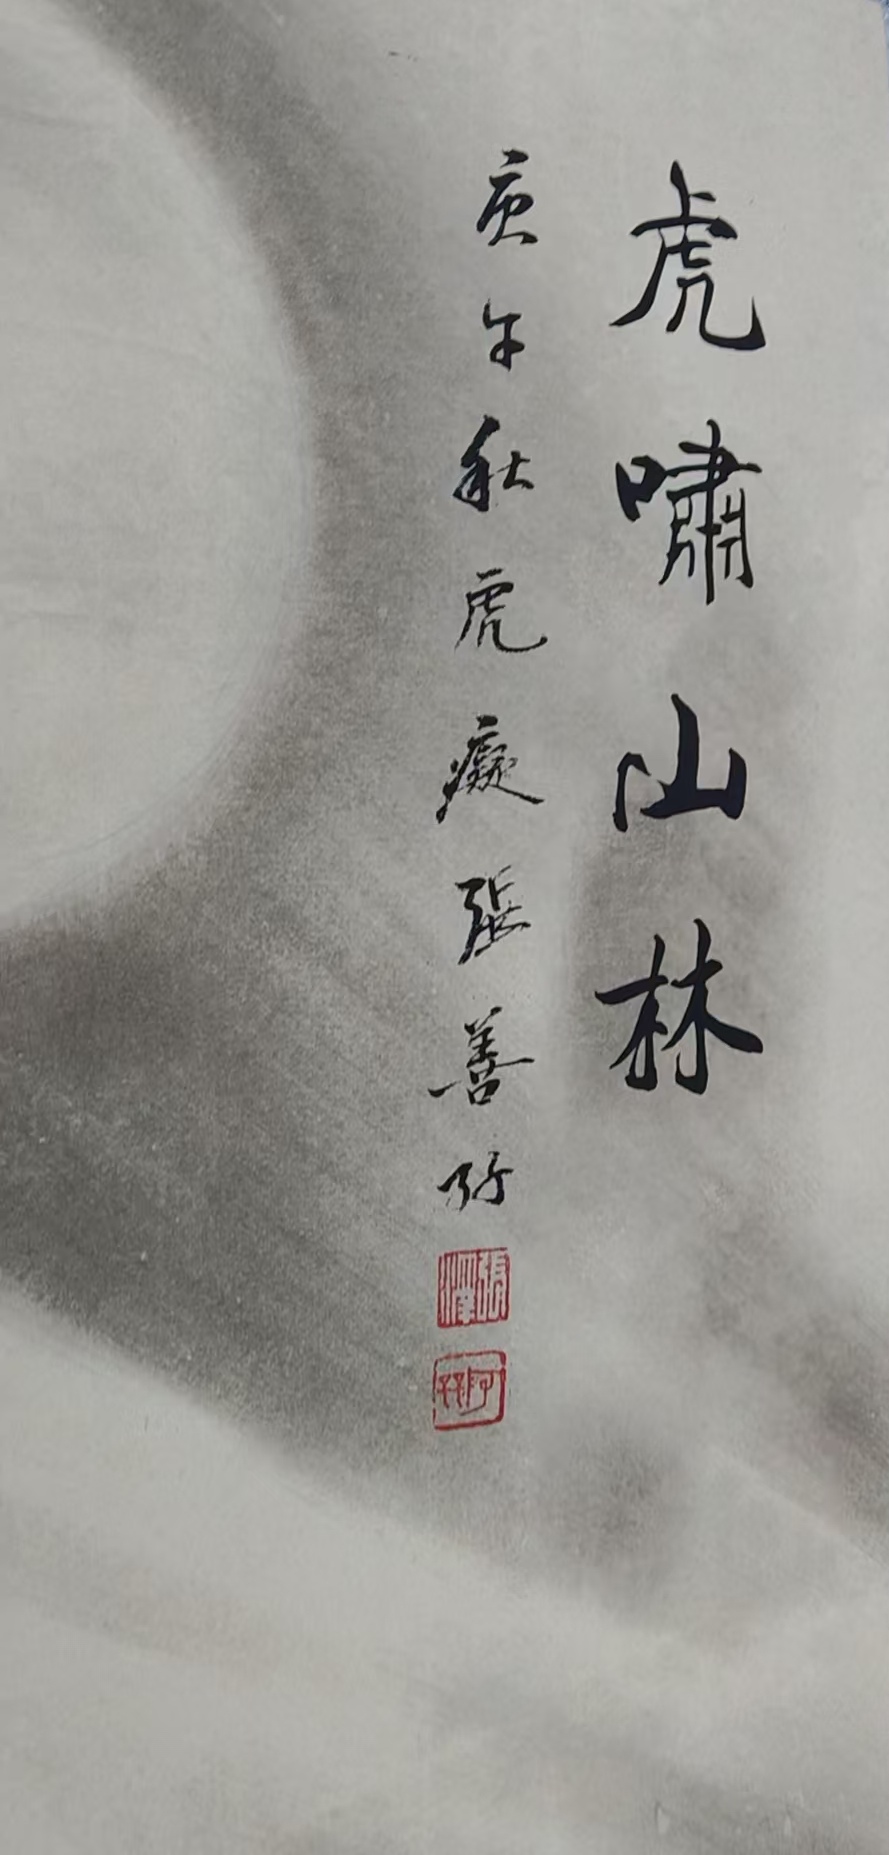 虎嘯山林
庚午秋虎癡張善孖
張澤